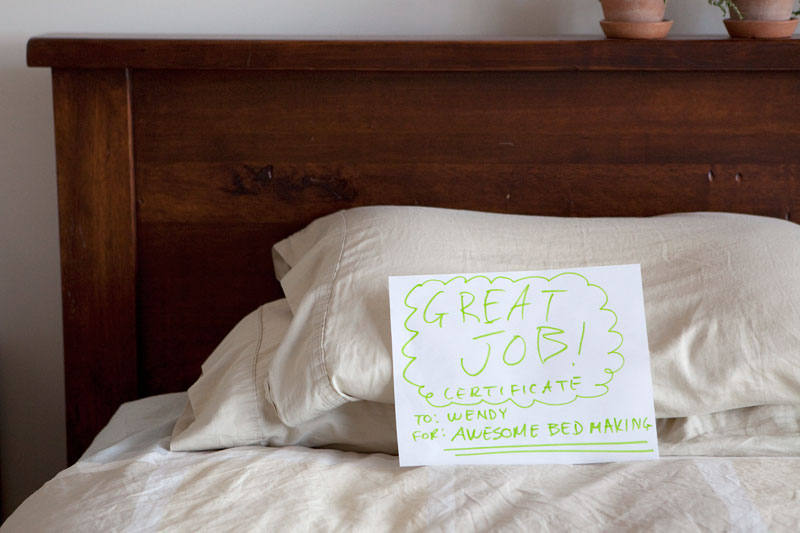 GREAT
JOB!
CERTIFICATE
TO: WENDY
FOR: AWESOME BED MAKING